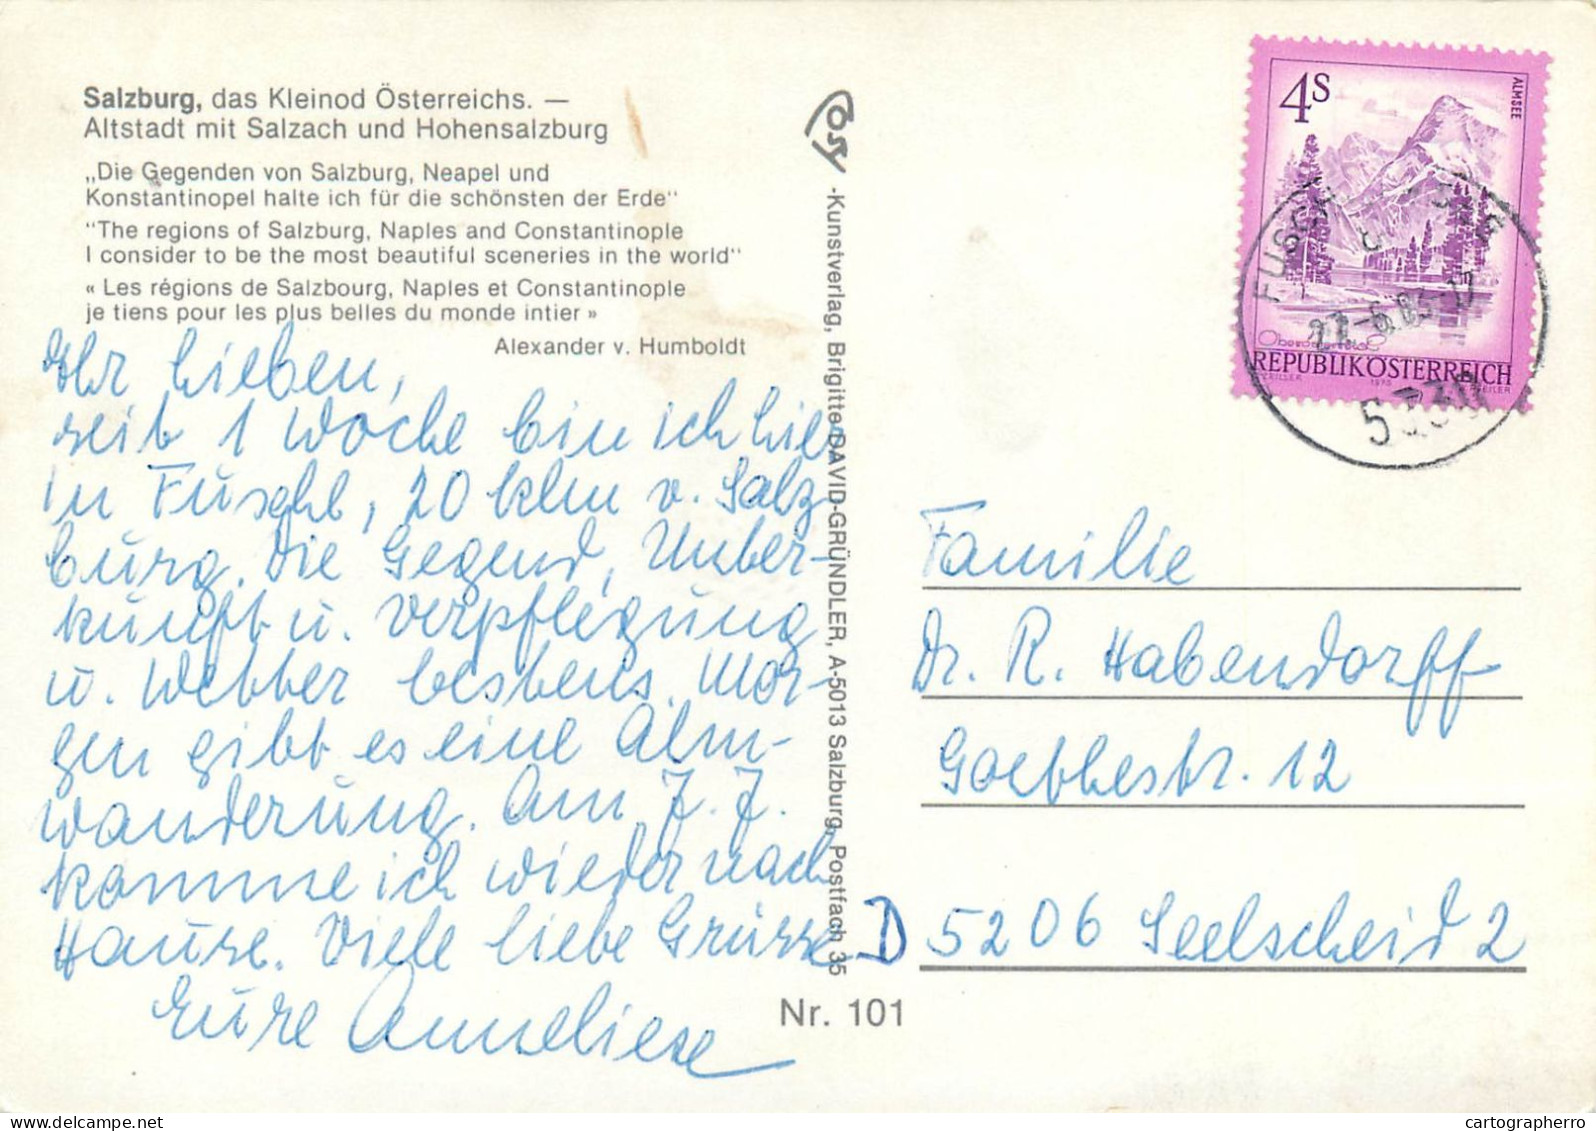 Salzburg, das Kleinod Österreichs. —
Altstadt mit Salzach und Hohensalzburg
„Die Gegenden von Salzburg, Neapel und
Konstantinopel halte ich für die schönsten der Erde"
"The regions of Salzburg, Naples and Constantinople
I consider to be the most beautiful sceneries in the world"
« Les régions de Salzbourg, Naples et Constantinople
je tiens pour les plus belles du monde intier »
Alexander v. Humboldt
Ihr Lieben,
seit 1 Woche bin ich hier
in Fuschl, 20 klm v. Salz-
burg. Die Gegend, Unter-
kunft u. Verpflegung
u. Wetter bestens. Mor-
gen gibt es eine Alm-
wanderung. Am 7. 7.
komme ich wieder nach
Hause. Viele liebe Grüsse
Eure Anneliese
Cosy
-Kunstverlag, Brigitte DAVID-GRÜNDLER, A-5013 Salzburg, Postfach 35
Nr. 101
4S
ALMSEE
Oberösterreich
REPUBLIK ÖSTERREICH
1975
FUSCHL
5330
Familie
Dr. R. Habendorff
Goethestr. 12
D 5206 Seelscheid 2
cartographerro